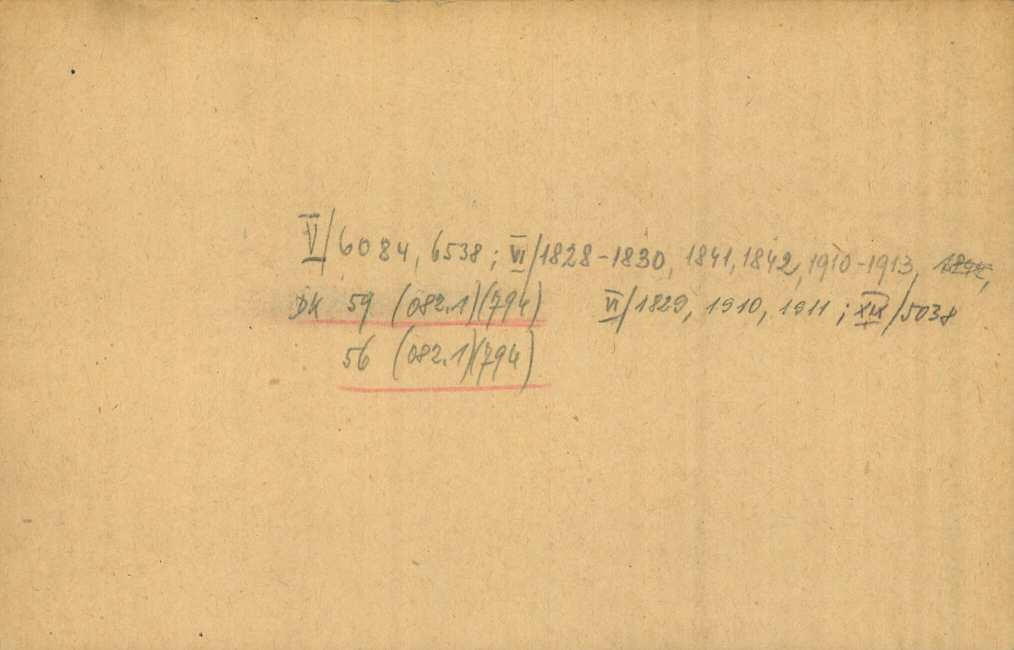 V/6084, 6538; VI/1828-1830, 1841, 1842, 1910-1913,
DK 59 (082.1)(794) VI/1829, 1910, 1911; XIX/5038
56 (082.1)(794)